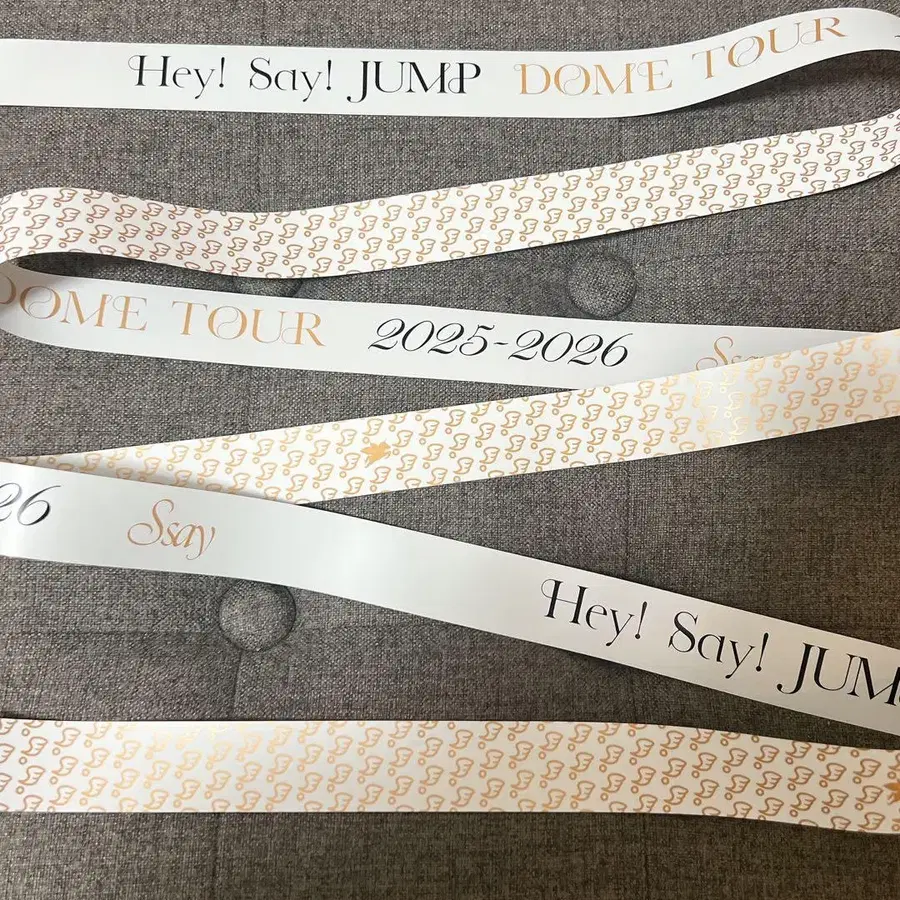 Hey! Say! JUMP DOME TOUR
DOME TOUR 2025-2026 Ssay
26 Ssay Hey! Say! JUM